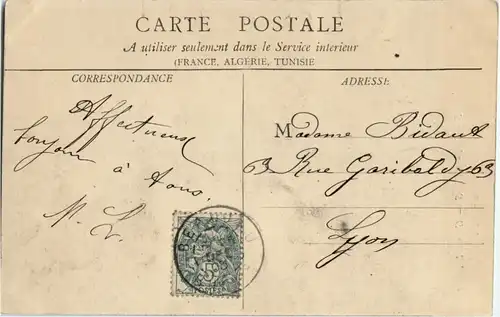 CARTE POSTALE
A utiliser seulement dans le Service interieur
(FRANCE, ALGÉRIE, TUNISIE
CORRESPONDANCE
Affectueux
à tous.
M. L.
ADRESSE
Madame Bidaut
63 Rue Garibaldy 63
Lyon
5c